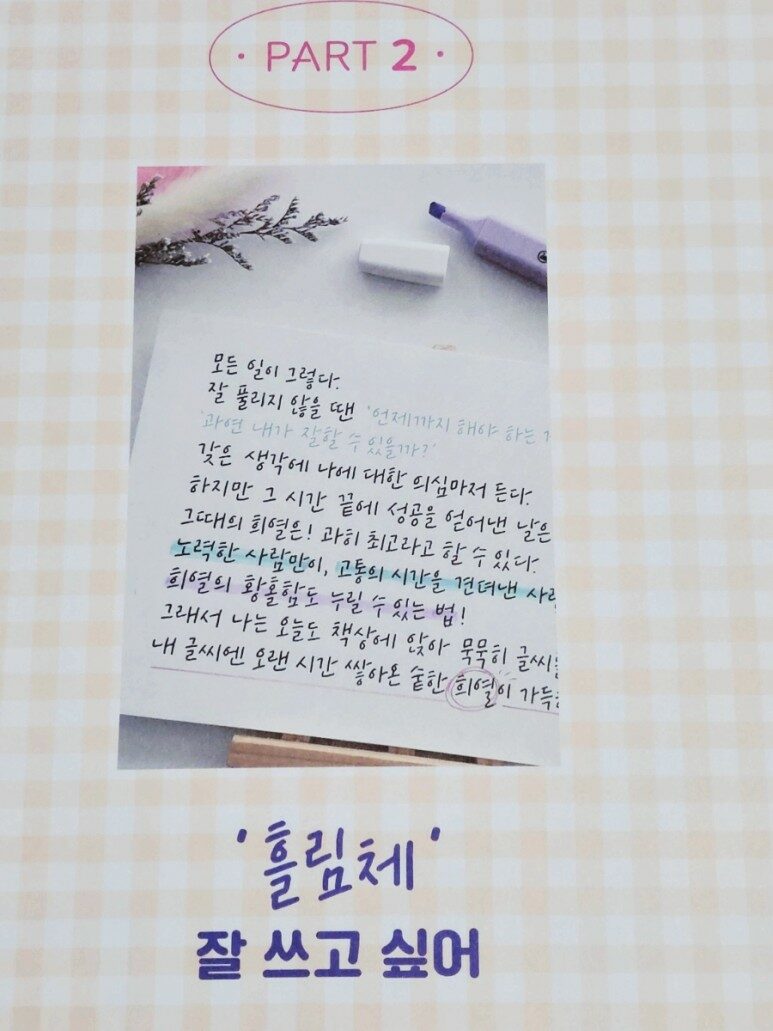 · PART 2 ·
모든 일이 그렇다.
잘 풀리지 않을 땐 '언제까지 해야 하는
'과연 내가 잘할 수 있을까?'
갖은 생각에 나에 대한 의심마저 든다.
하지만 그 시간 끝에 성공을 얻어낸 날은
그때의 희열은! 과히 최고라고 할 수 있다.
노력한 사람만이, 고통의 시간을 견뎌낸 사람
희열의 황홀함도 누릴 수 있는 법!
그래서 나는 오늘도 책상에 앉아 묵묵히 글씨를
내 글씨엔 오랜 시간 쌓아온 숱한 희열이 가득
'흘림체'
잘 쓰고 싶어